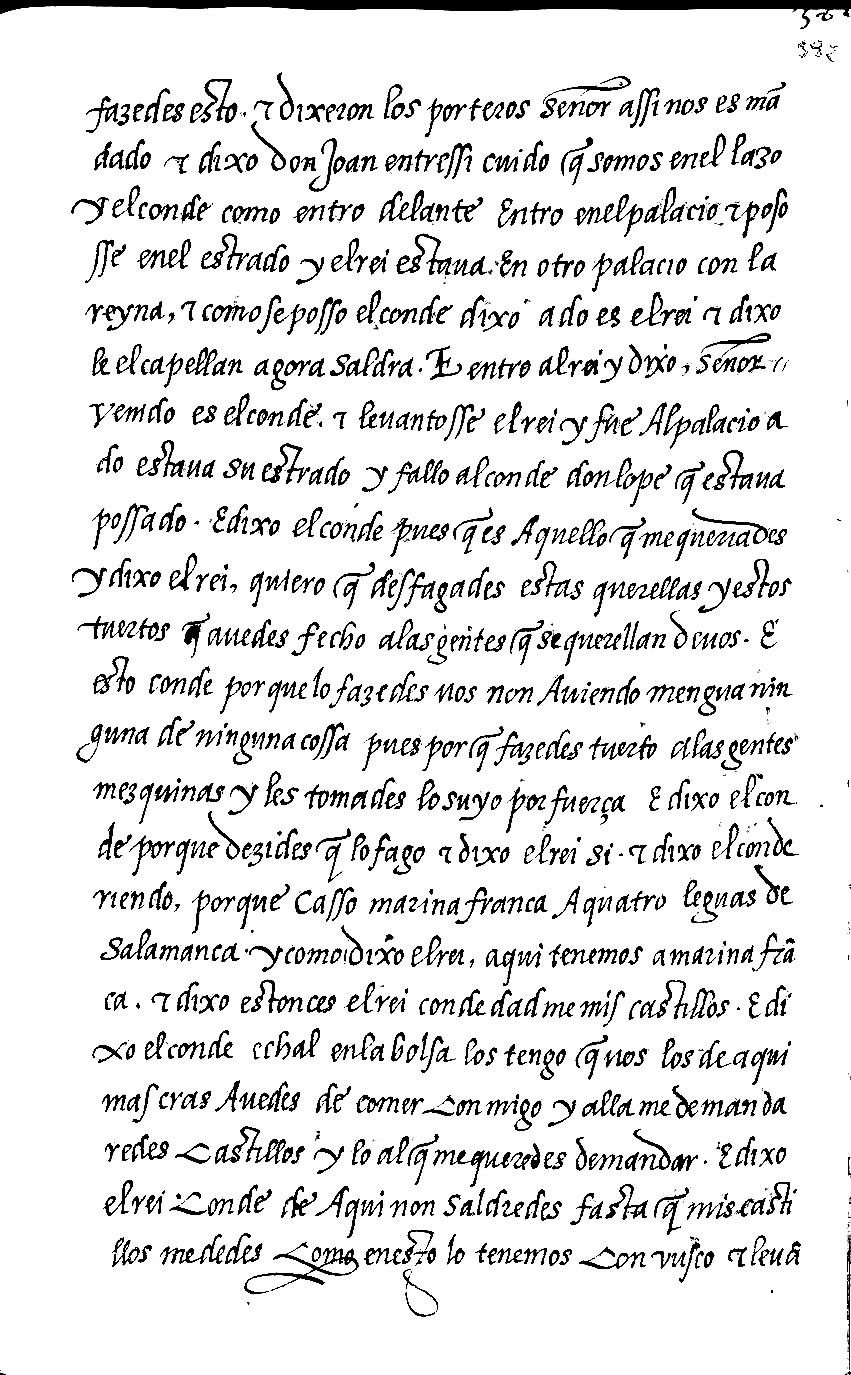 fazedes esto. τ dixeron los porteros señor assi nos es mã
dado τ dixo don Joan entressi cuido q̃ somos enel lazo
y elconde como entro delante Entro enel palacio τ poso
sse enel estrado y elrei estaua. En otro palacio con la
reyna, τ como se posso elconde dixo ado es elrei τ dixo
le elcapellan agora Saldra. E entro alrei y dixo, señor
venido es elconde. τ leuantosse elrei y fue Alpalacio a
do estaua su estrado y fallo alconde donlope q̃ estaua
possado. E dixo elconde pues q̃ es Aquello q̃ me queriades
y dixo elrei, quiero q̃ desfagades estas querellas y estos
tuertos q̃ auedes fecho alas gentes q̃ se querellan deuos. E
esto conde por que lo fazedes uos non Auiendo mengua nin
guna de ninguna cossa pues por q̃ fazedes tuerto alas gentes
mezquinas y les tomades lo suyo por fuerça E dixo elcon
de porque dezides q̃ lo fago τ dixo elrei si. τ dixo elconde
riendo, porque Casso marina franca A quatro leguas de
Salamanca. y como dixo elrei, aqui tenemos amarina frã
ca. τ dixo estonces elrei conde dad me mis castillos. E di
xo elconde echal enla bolsa los tengo q̃ uos los de aqui
mas cras Auedes de comer Conmigo y alla me demanda
redes Castillos y lo al q̃ me queredes demandar. E dixo
elrei Conde de Aqui non Saldredes fasta q̃ mis casti
llos me dedes Como enesto lo tenemos Con vusco τ leuã